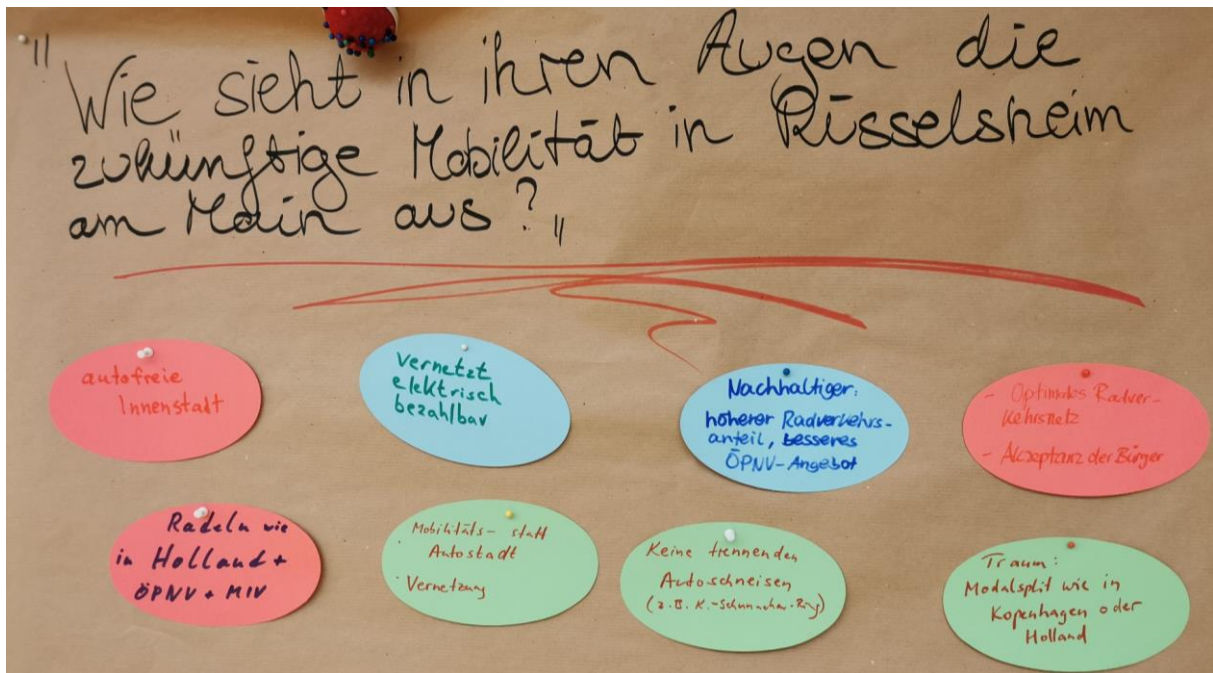 "Wie sieht in ihren Augen die
zukünftige Mobilität in Rüsselsheim
am Main aus?"
autofreie
Innenstadt
Vernetzt
elektrisch
bezahlbar
Nachhaltiger:
höherer Radverkehrs-
anteil, besseres
ÖPNV-Angebot
- Optimales Radver-
kehrsnetz
- Akzeptanz der Bürger
Radeln wie
in Holland +
ÖPNV + MIV
· Mobilitäts- statt
Autostadt
· Vernetzung
Keine trennenden
Autoschneisen
(z.B. K.-Schumacher-Ring)
Traum:
Modalsplit wie in
Kopenhagen oder
Holland